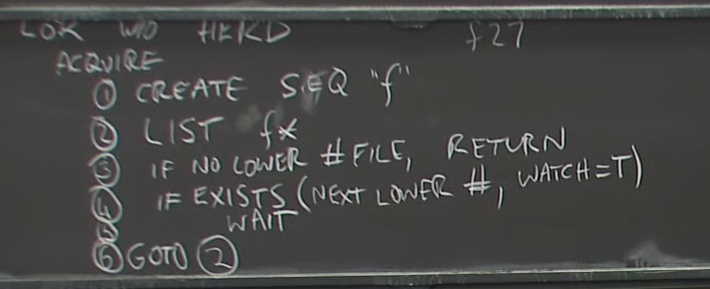 LOCK W/O HERD f27
ACQUIRE
① CREATE SEQ "f"
② LIST f*
③ IF NO LOWER # FILE, RETURN
④ IF EXISTS (NEXT LOWER #, WATCH=T)
⑤ WAIT
⑥ GOTO ②